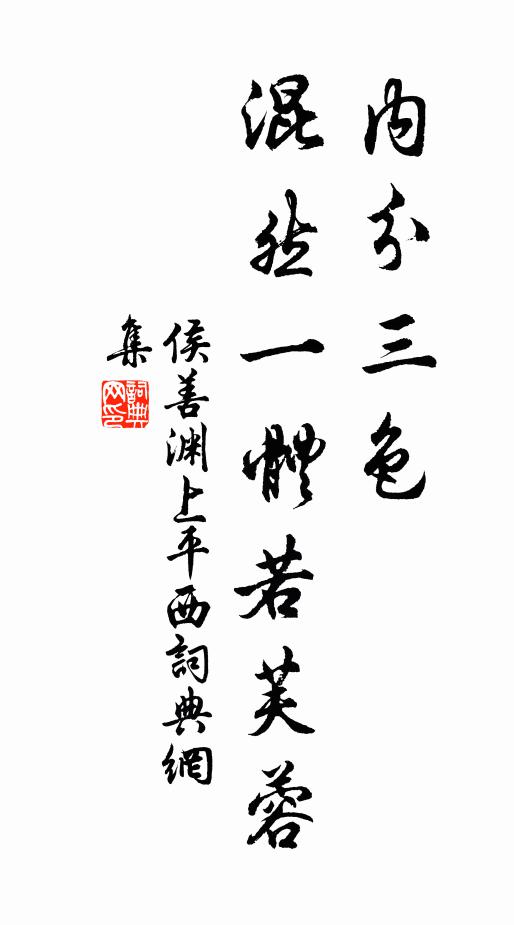 内分三色
混然一體若芙蓉
侯善渊上平西詞典網
集
詞典
网印